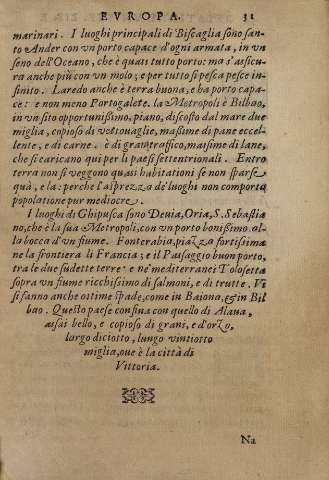 EVROPA. 31
marinari. I luoghi principali di Biscaglia sono san-
to Ander con vn porto capace d'ogni armata, in vn
seno dell'Oceano, che è quasi tutto porto: ma s'assicu-
ra anche più con vn molo; e per tutto si pesca pesce in-
finito. Laredo anche è terra buona, e ha porto capa-
ce: e non meno Portogalete. la Metropoli è Bilbao,
in vn sito opportunissimo, piano, discosto dal mare due
miglia, copioso di vettouaglie, massime di pane eccel-
lente, e di carne. è di gran traffico, massime di lane,
che si caricano qui per li paesi settentrionali. Entro
terra non si veggono quasi habitationi se non sparse
quà, e là: perche l'asprezza de' luoghi non comporta
popolatione pur mediocre.
I luoghi di Ghipusca sono Deuia, Oria, S. Sebastia
no, che è la sua Metropoli, con vn porto bonissimo al-
la bocca d'vn fiume. Fonterabia, piazza fortissima
ne la frontiera di Francia; e il Passaggio buon porto,
tra le due sudette terre: e ne' mediterranei Tolosetta
sopra vn fiume ricchissimo di salmoni, e di trutte. Vi
si fanno anche ottime spade, come in Baiona, & in Bil
bao. Questo paese confina con quello di Alaua,
assai bello, e copioso di grani, e d'orzo,
largo diciotto, lungo vintiotto
miglia, oue è la città di
Vittoria.
Na